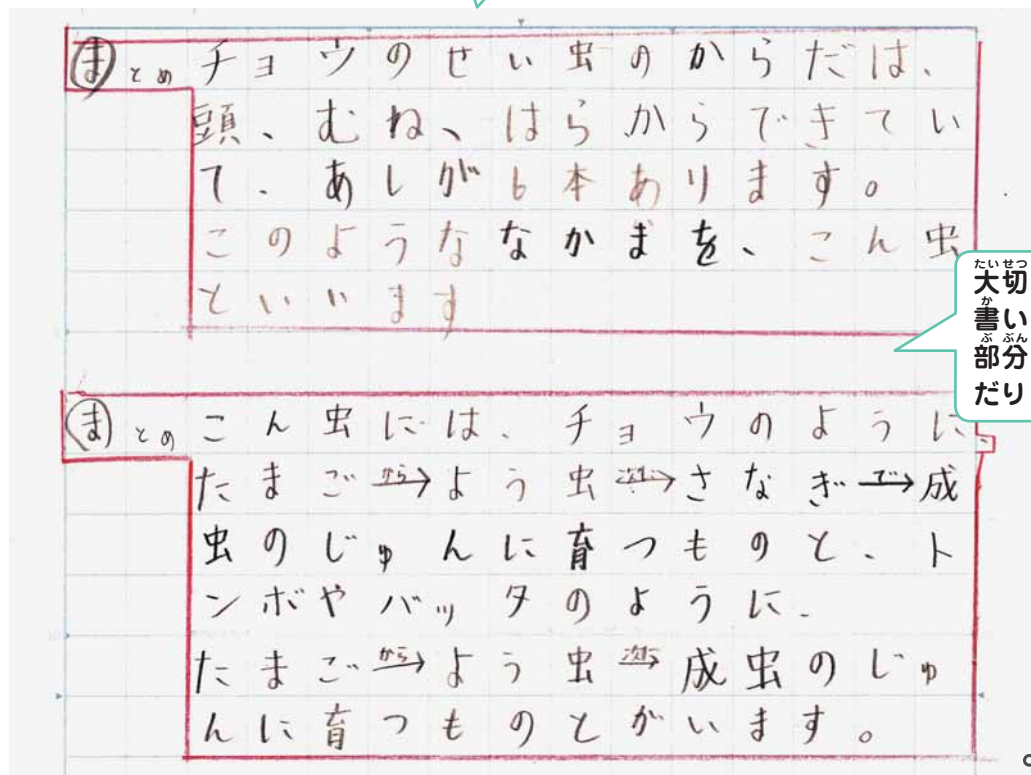 まとめ チョウのせい虫のからだは、
頭、むね、はらからできてい
て、あしが6本あります。
このようななかまを、こん虫
といいます
大切
書い
部分
だり
まとめ こん虫には、チョウのように、
たまご から→ よう虫 → さなぎ で→ 成
虫のじゅんに育つものと、ト
ンボやバッタのように、
たまご から→ よう虫 → 成虫のじゅ
んに育つものとがいます。